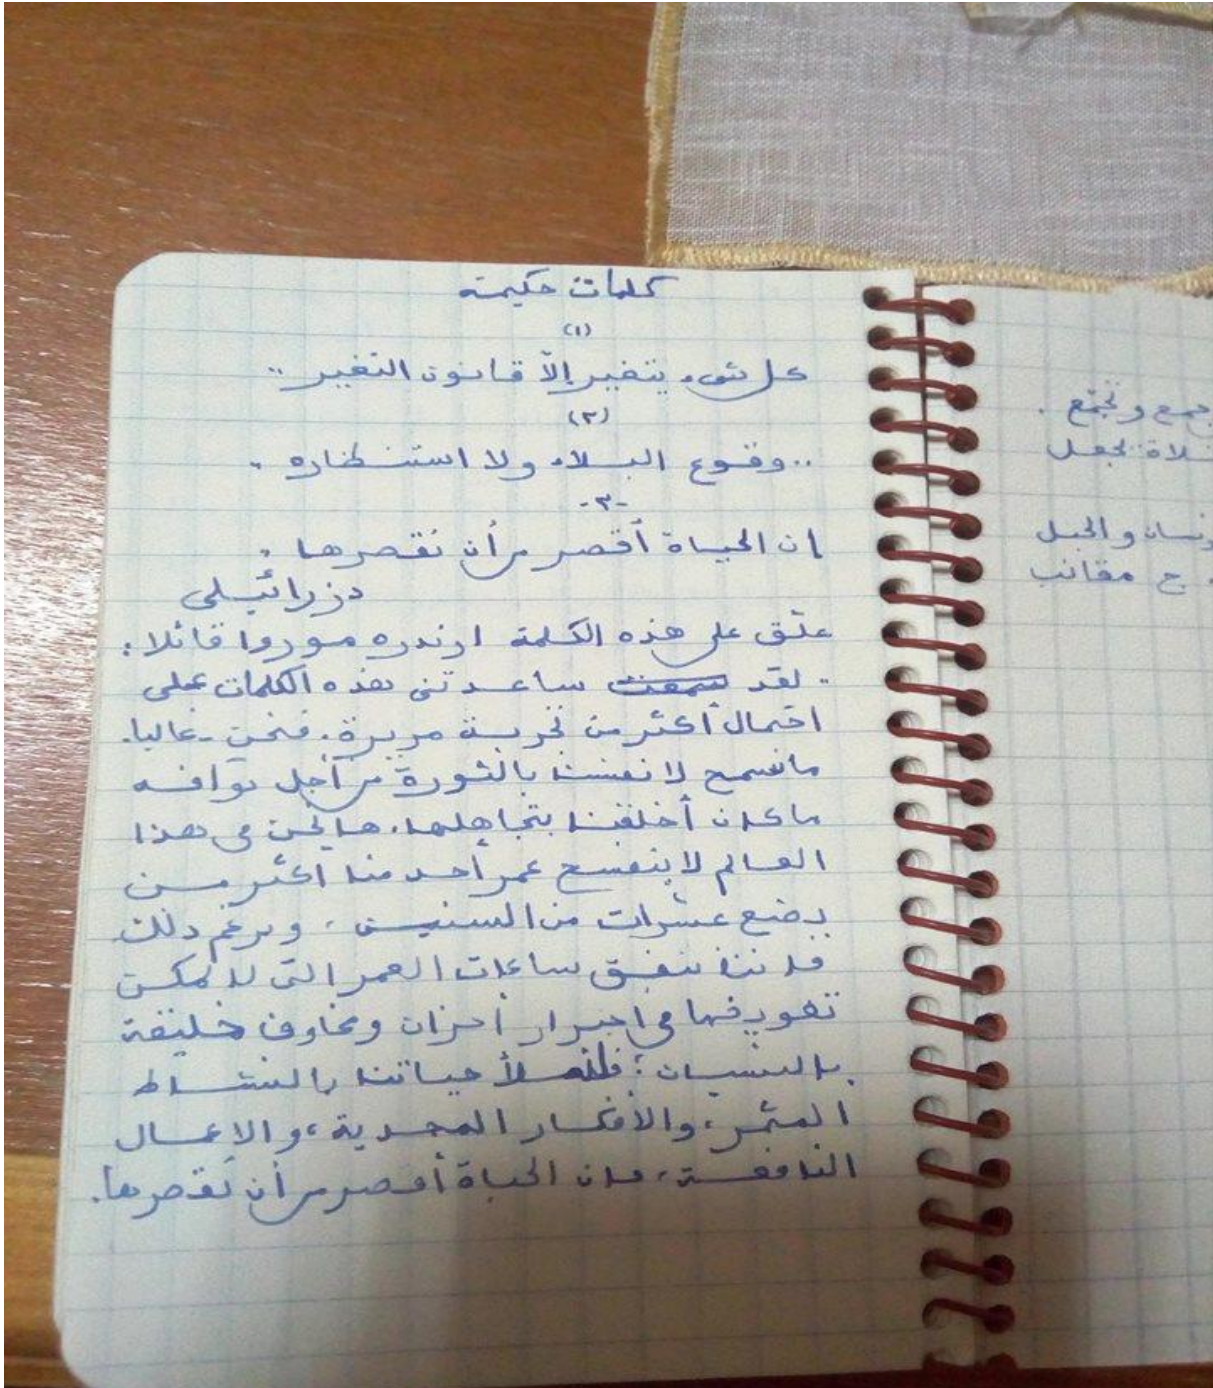 كلمات حكيمة
(١)
كل شىء يتغير إلاّ قانون التغير ..
(٢)
.. وقوع البلاء ولا استنظاره .
-٣-
إن الحياة أقصر من أن نقصرها .
دزرائيلى
علّق على هذه الكلمة اندره موروا قائلا :
. لقد ساعدتنى هذه الكلمات على
احتمال أكثر من تجربة مريرة . فنحن - غالبا -
ما نسمح لانفسنا بالثورة من أجل توافه
ما كان أخلقنا بتجاهلها . ها نحن فى هذا
العالم لا ينفسح عمر أحد منا اكثر من
بضع عشرات من السنين ، وبرغم ذلك
فاننا ننفق ساعات العمر التى لا يمكن
تعويضها فى اجترار أحزان ومخاوف خليقة
بالنسيان ؛ فلنملأ حياتنا بالنشاط
المثمر ، والأفكار المجدية ، والاعمال
النافعة ، فان الحياة أقصر من أن نُقصرها .
جمع وتجمّع .
تجعل
والجبل
ج مقانب